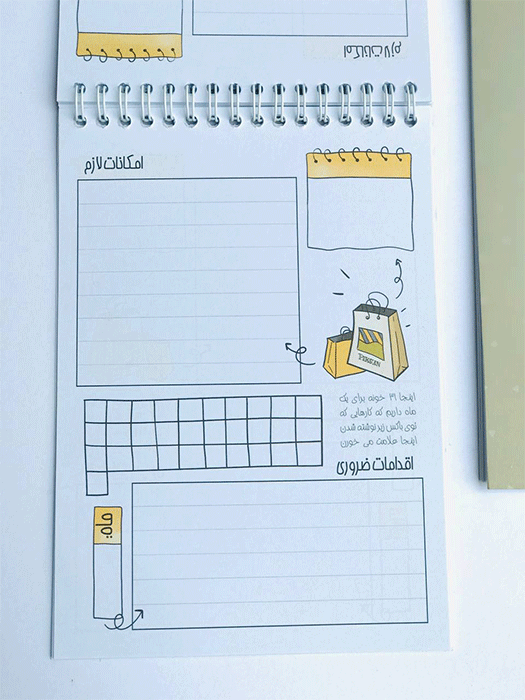 امکانات لازم
امکانات لازم
اینجا ۳۱ خونه برای یک
ماه داریم که کارهایی که
توی باکس زیر نوشته شدن
اینجا علامت می خورن
اقدامات ضروری
ماه: